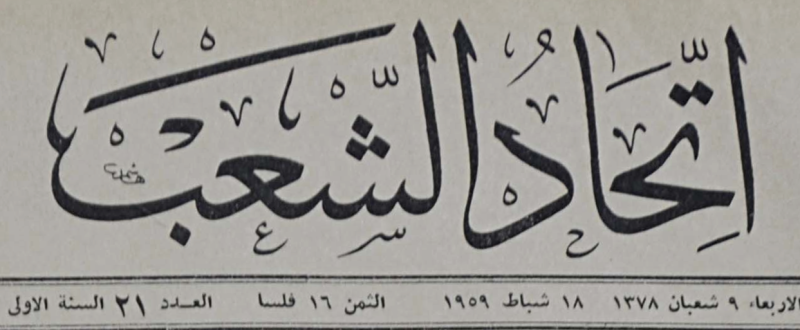 اتِّحادُ الشَّعب
الاربعاء ٩ شعبان ١٣٧٨ ١٨ شباط ١٩٥٩ الثمن ١٦ فلسا العـدد ٢١ السنة الاولى